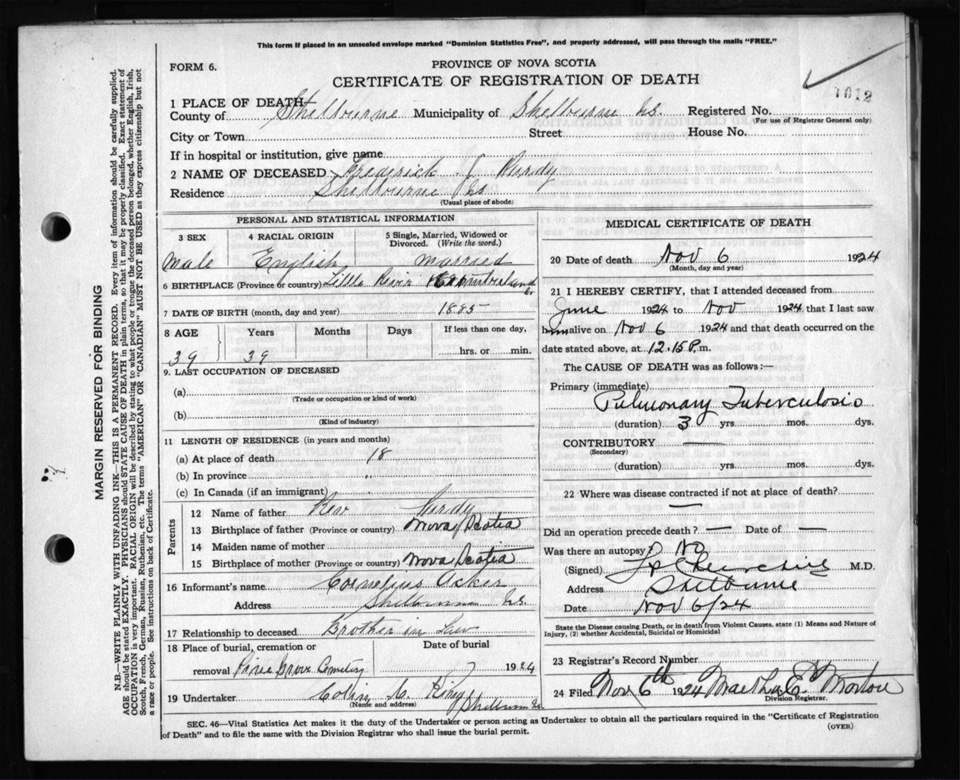 This form if placed in an unsealed envelope marked "Dominion Statistics Free", and properly addressed, will pass through the mails "FREE."
FORM 6.
PROVINCE OF NOVA SCOTIA
CERTIFICATE OF REGISTRATION OF DEATH
1012
1 PLACE OF DEATH
County of Shelbourne Municipality of Shelbourne Registered No.
(For use of Registrar General only)
City or Town Street House No.
If in hospital or institution, give name
2 NAME OF DECEASED Frederick J Hardy
Residence Shelbourne NS
(Usual place of abode)
PERSONAL AND STATISTICAL INFORMATION
3 SEX 4 RACIAL ORIGIN 5 Single, Married, Widowed or Divorced. (Write the word.)
Male English married
6 BIRTHPLACE (Province or country) Little River Cumberland Co.
7 DATE OF BIRTH (month, day and year) 1885
8 AGE Years Months Days If less than one day,
39 39 hrs. or min.
9. LAST OCCUPATION OF DECEASED
(a)
(Trade or occupation or kind of work)
(b)
(Kind of industry)
11 LENGTH OF RESIDENCE (in years and months)
(a) At place of death 18
(b) In province "
(c) In Canada (if an immigrant)
Parents
12 Name of father Hardy
13 Birthplace of father (Province or country) Nova Scotia
14 Maiden name of mother
15 Birthplace of mother (Province or country) Nova Scotia
16 Informant's name Cornelius Acker
Address Shelburne NS.
17 Relationship to deceased Brother in Law
18 Place of burial, cremation or Date of burial
removal Pine Grove Cemetery 1924
19 Undertaker Colin C. King
(Name and address) Shelburne NS
MEDICAL CERTIFICATE OF DEATH
20 Date of death Nov 6 1924
(Month, day and year)
21 I HEREBY CERTIFY, that I attended deceased from
June 1924 to Nov 1924 that I last saw
him alive on Nov 6 1924 and that death occurred on the
date stated above, at 12.15 P.m.
The CAUSE OF DEATH was as follows:—
Primary (immediate)
Pulmonary Tuberculosis
(duration) 3 yrs. mos. dys.
CONTRIBUTORY —
(Secondary)
(duration) yrs. mos. dys.
22 Where was disease contracted if not at place of death?
—
Did an operation precede death? — Date of —
Was there an autopsy? No
(Signed) M.D.
Address Shelburne
Date Nov 6/24
State the Disease causing Death, or in death from Violent Causes, state (1) Means and Nature of Injury, (2) whether Accidental, Suicidal or Homicidal
23 Registrar's Record Number
24 Filed Nov 6th 1924 Martha E. Morton
Division Registrar.
SEC. 46—Vital Statistics Act makes it the duty of the Undertaker or person acting as Undertaker to obtain all the particulars required in the "Certificate of Registration
of Death" and to file the same with the Division Registrar who shall issue the burial permit.
(OVER)
MARGIN RESERVED FOR BINDING
N.B.—WRITE PLAINLY WITH UNFADING INK—THIS IS A PERMANENT RECORD. Every item of information should be carefully supplied.
AGE should be stated EXACTLY. PHYSICIANS should STATE CAUSE OF DEATH in plain terms, so that it may be properly classified. Exact statement of
OCCUPATION is very important. RACIAL ORIGIN will be described by stating to what people or tongue the deceased person belonged, whether English, Irish,
Scotch, French, German, Russian, Ruthenian, etc. The terms "AMERICAN" OR "CANADIAN" MUST NOT BE USED as they express citizenship but not
a race or people. See instructions on back of Certificate.